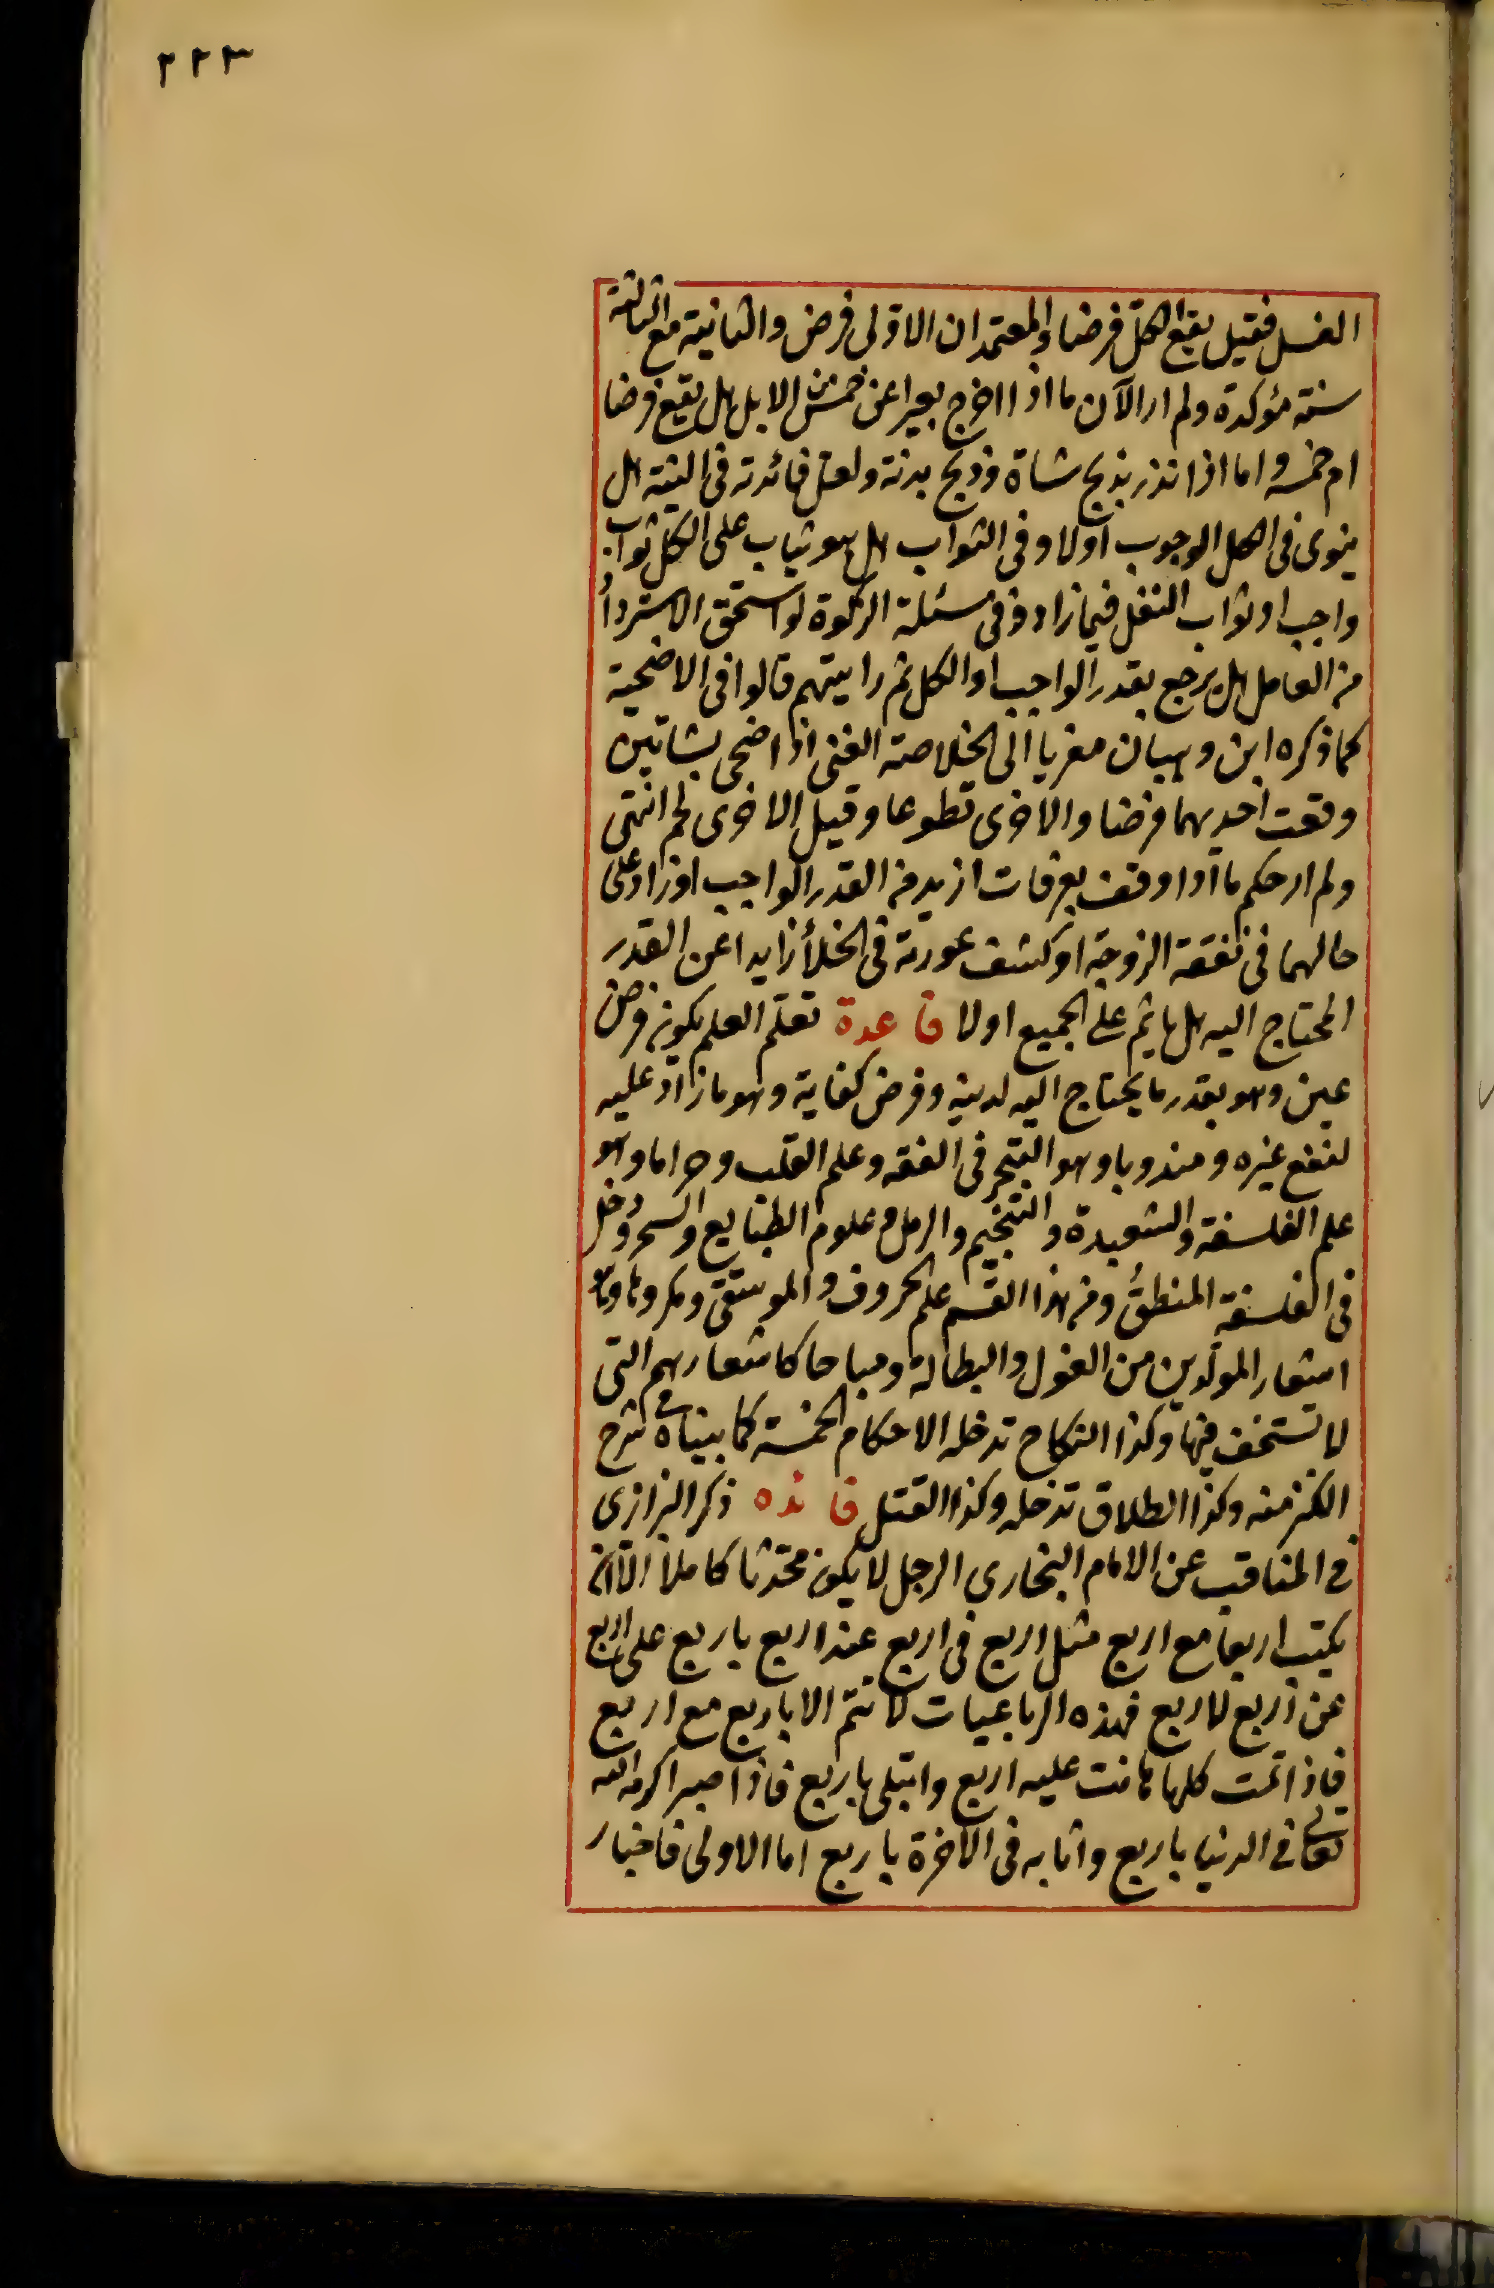 ٢٢٣
الغسل فقيل يقع الكل فرضا والمعتمد ان الاولى فرض والثانية مع الثالثة
سنة مؤكدة ولم ار الآن ما اذا اخرج بعيرا عن خمس من الابل هل يقع فرضا
ام خمسه واما اذا نذر بذبح شاة فذبح بدنة ولعل فائدته فى النية هل
ينوى فى الكل الوجوب اولا وفى الثواب هل هو يثاب على الكل ثواب
واجب او ثواب النفل فيما زاد وفى مسئلة الزكوة لو استحق الاسترداد
من العامل هل يرجع بقدر الواجب او الكل ثم رايتهم قالوا فى الاضحية
كما ذكره ابن وهبان معزيا الى الخلاصة الغنى اذا ضحى بشاتين
وقعت احديهما فرضا والاخرى تطوعا وقيل الاخرى لحم انتهى
ولم ار حكم ما اذا وقف بعرفات ازيد من القدر الواجب او زاد على
حالهما فى نفقة الزوجة او كشف عورته فى الخلأ زايدا عن القدر
المحتاج اليه هل ياثم على الجميع اولا قاعدة تعلم العلم يكون فرض
عين وهو بقدر ما يحتاج اليه لدينه وفرض كفاية وهو ما زاد عليه
لنفع غيره ومندوبا وهو التبحر فى الفقه وعلم القلب وحراما وهو
علم الفلسفة والشعبدة والتنجيم والرمل وعلوم الطبايع والسحر ودخل
فى الفلسفة المنطق ومن هذا القسم علم الحروف والموسيقى ومكروها وهو
اشعار المولدين من الغزل والبطالة ومباحا كاشعارهم التى
لا تستخف فيها وكذا النكاح تدخله الاحكام الخمسة كما بيناه فى شرح
الكنز منه وكذا الطلاق تدخله وكذا القتل فائده ذكر البزازى
فى المناقب عن الامام البخارى الرجل لا يكون محدثا كاملا الا ان
يكتب اربعا مع اربع مثل اربع فى اربع عند اربع باربع على اربع
عن اربع لاربع فهذه الرباعيات لا تتم الا باربع مع اربع
فاذا تمت كلها هانت عليه اربع وابتلى باربع فاذا صبر اكرمه الله
تعالى فى الدنيا باربع واثابه فى الآخرة باربع اما الاولى فاخبار